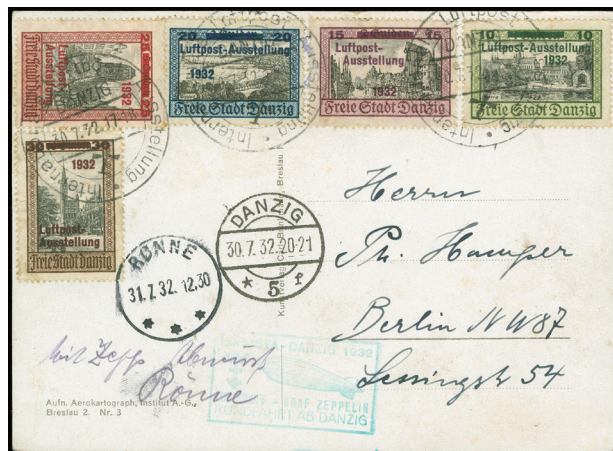 25 2 Gulden 2
Luftpost-
Ausstellung
1932
Freie Stadt Danzig
20 20
Luftpost-Ausstellung
1932
Freie Stadt Danzig
15 2 Gulden 15
Luftpost-
Ausstellung
1932
Freie Stadt Danzig
10 10
Luftpost-Ausstellung
1932
Freie Stadt Danzig
Luftpost
DANZIG
30.7.32.17
30 30
1932
Luftpost-
Ausstellung
Freie Stadt Danzig
DANZIG
30.7.32.20-21
* 5 f
RØNNE
31.7.32. 12.30
Breslau
Herrn
Ph. Hamper
Berlin NW87
Lessingstr. 54
mit Zepp Abwurf
Rönne
DANZIG 1932
GRAF ZEPPELIN
RUNDFAHRT AB DANZIG
Aufn. Aerokartograph. Institut A.-G.,
Breslau 2. Nr. 3